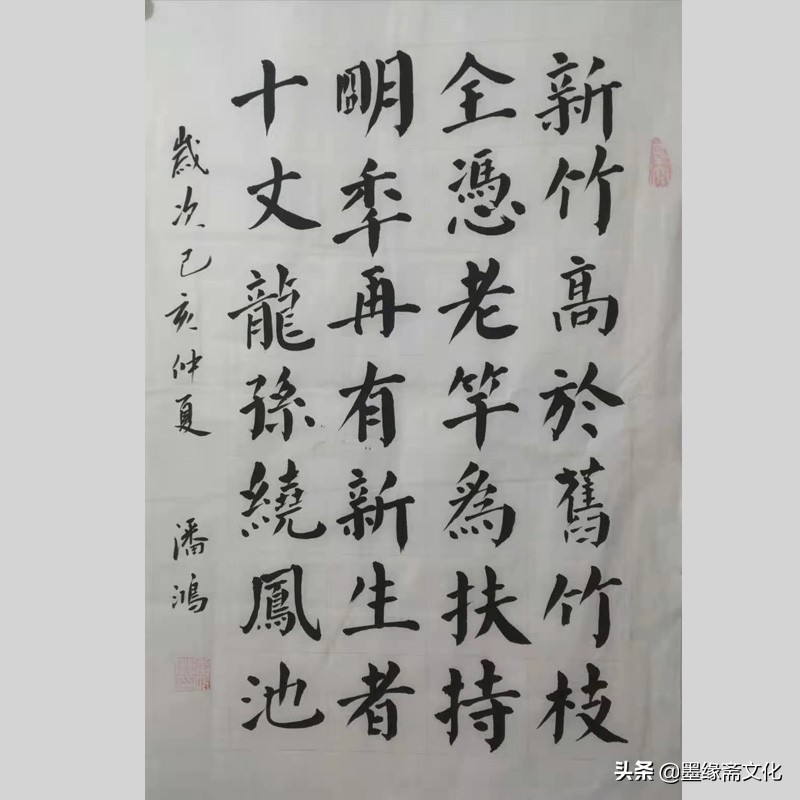 新竹高於舊竹枝
全憑老竿為扶持
明年再有新生者
十丈龍孫繞鳳池
歲次己亥仲夏 潘鴻
头条 @墨缘斋文化